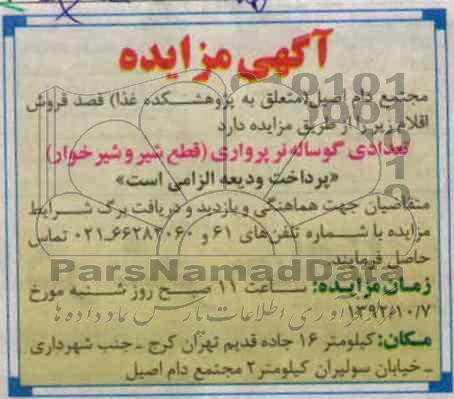 آگهی مزایده
مجتمع دام اصیل(متعلق به پژوهشکده غذا) قصد فروش
اقلام زیر را از طریق مزایده دارد
تعدادی گوساله نر پرواری (قطع شیر و شیر خوار)
«پرداخت ودیعه الزامی است»
متقاضیان جهت هماهنگی و بازدید و دریافت برگ شرایط
مزایده با شماره تلفن‌های ۶۱ و ۶۶۲۸۲۰۶۰-۰۲۱ تماس
حاصل فرمایند
ParsNamadData
زمان مزایده: ساعت ۱۱ صبح روز شنبه مورخ
۱۳۹۲/۱۰/۷
فرآوری اطلاعات پارس نماد داده ها
مکان: کیلومتر ۱۶ جاده قدیم تهران کرج - جنب شهرداری
- خیابان سولیران کیلومتر۲ مجتمع دام اصیل